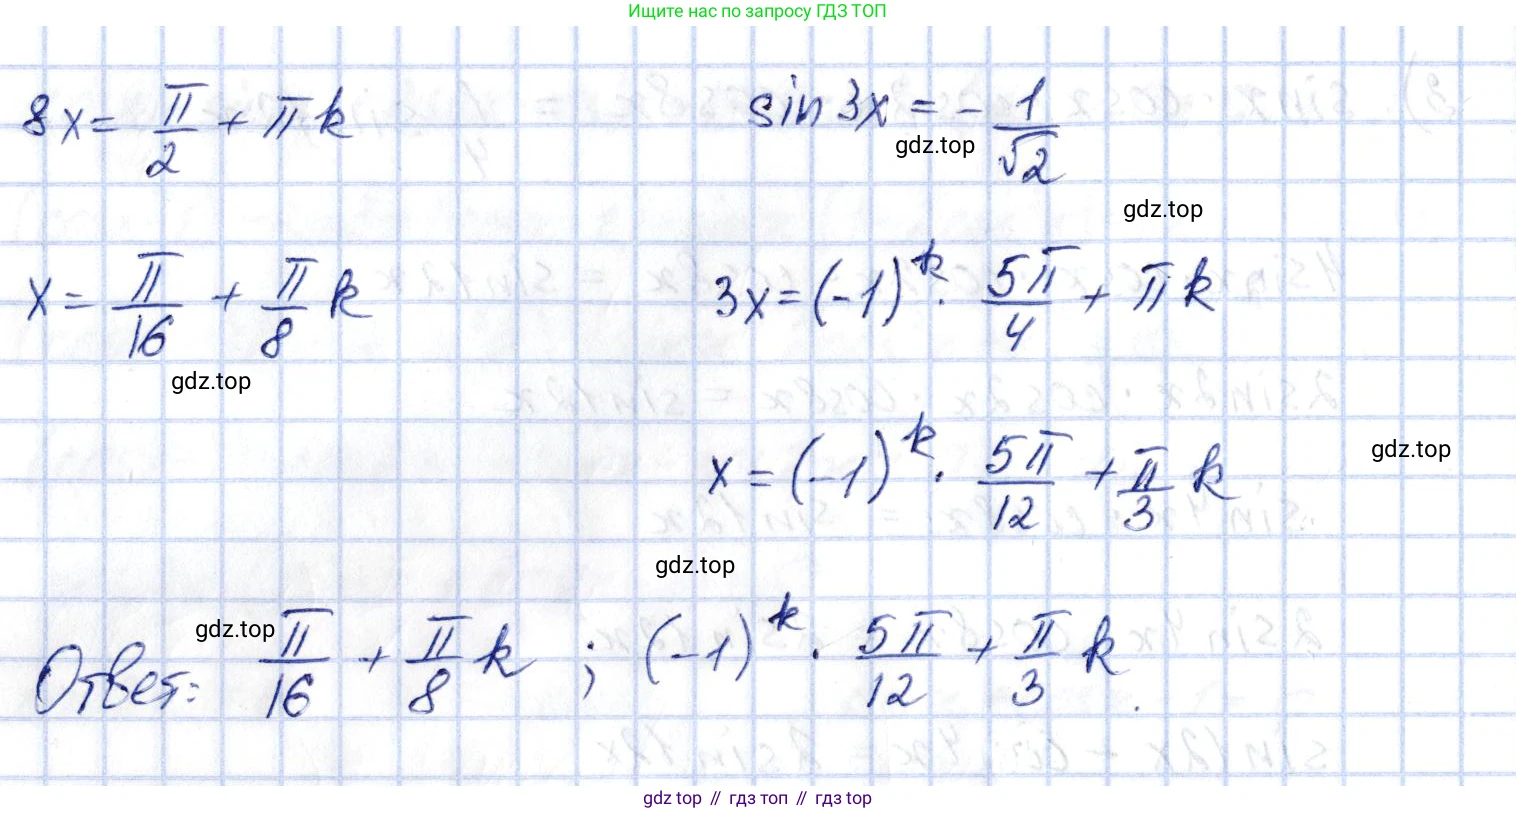 Ищите нас по запросу ГДЗ ТОП
8x = π/2 + πk
sin 3x = - 1/√2
gdz.top
gdz.top
x = π/16 + π/8 k
3x = (-1)^k · 5π/4 + πk
gdz.top
x = (-1)^k · 5π/12 + π/3 k
gdz.top
gdz.top
gdz.top
Ответ: π/16 + π/8 k ; (-1)^k · 5π/12 + π/3 k.
gdz top // гдз топ // гдз top